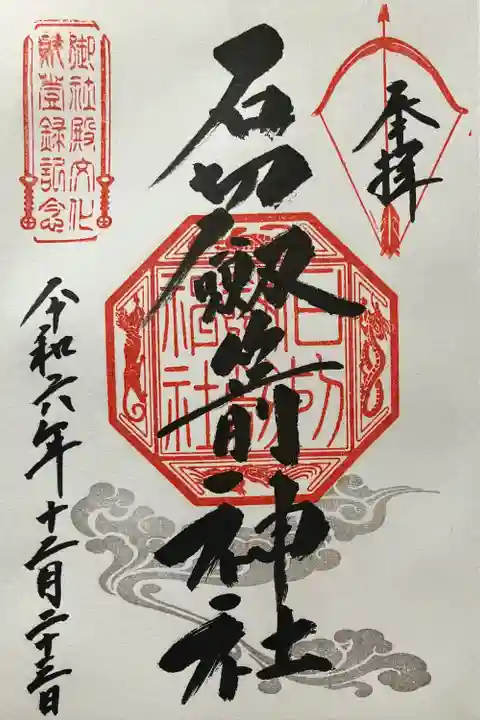 奉拝
石切劔箭神社
御社殿文化
財登録記念
令和六年十二月二十三日